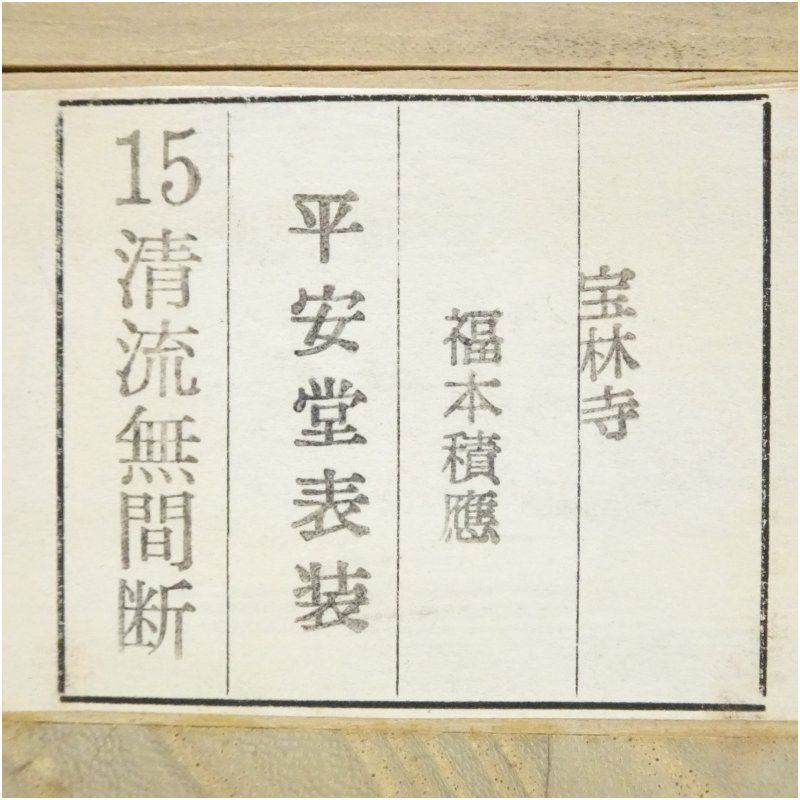 宝林寺
福本積應
平安堂表装
15清流無間断